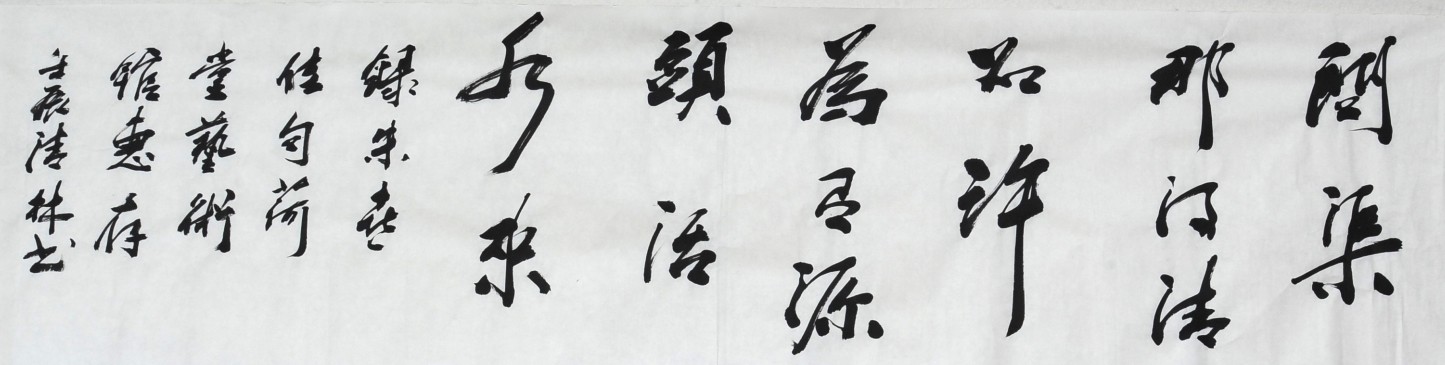 問渠
那得清
如許
為有源
頭活
水來
錄朱熹
佳句荷
堂藝術
館惠存
壬辰清林書